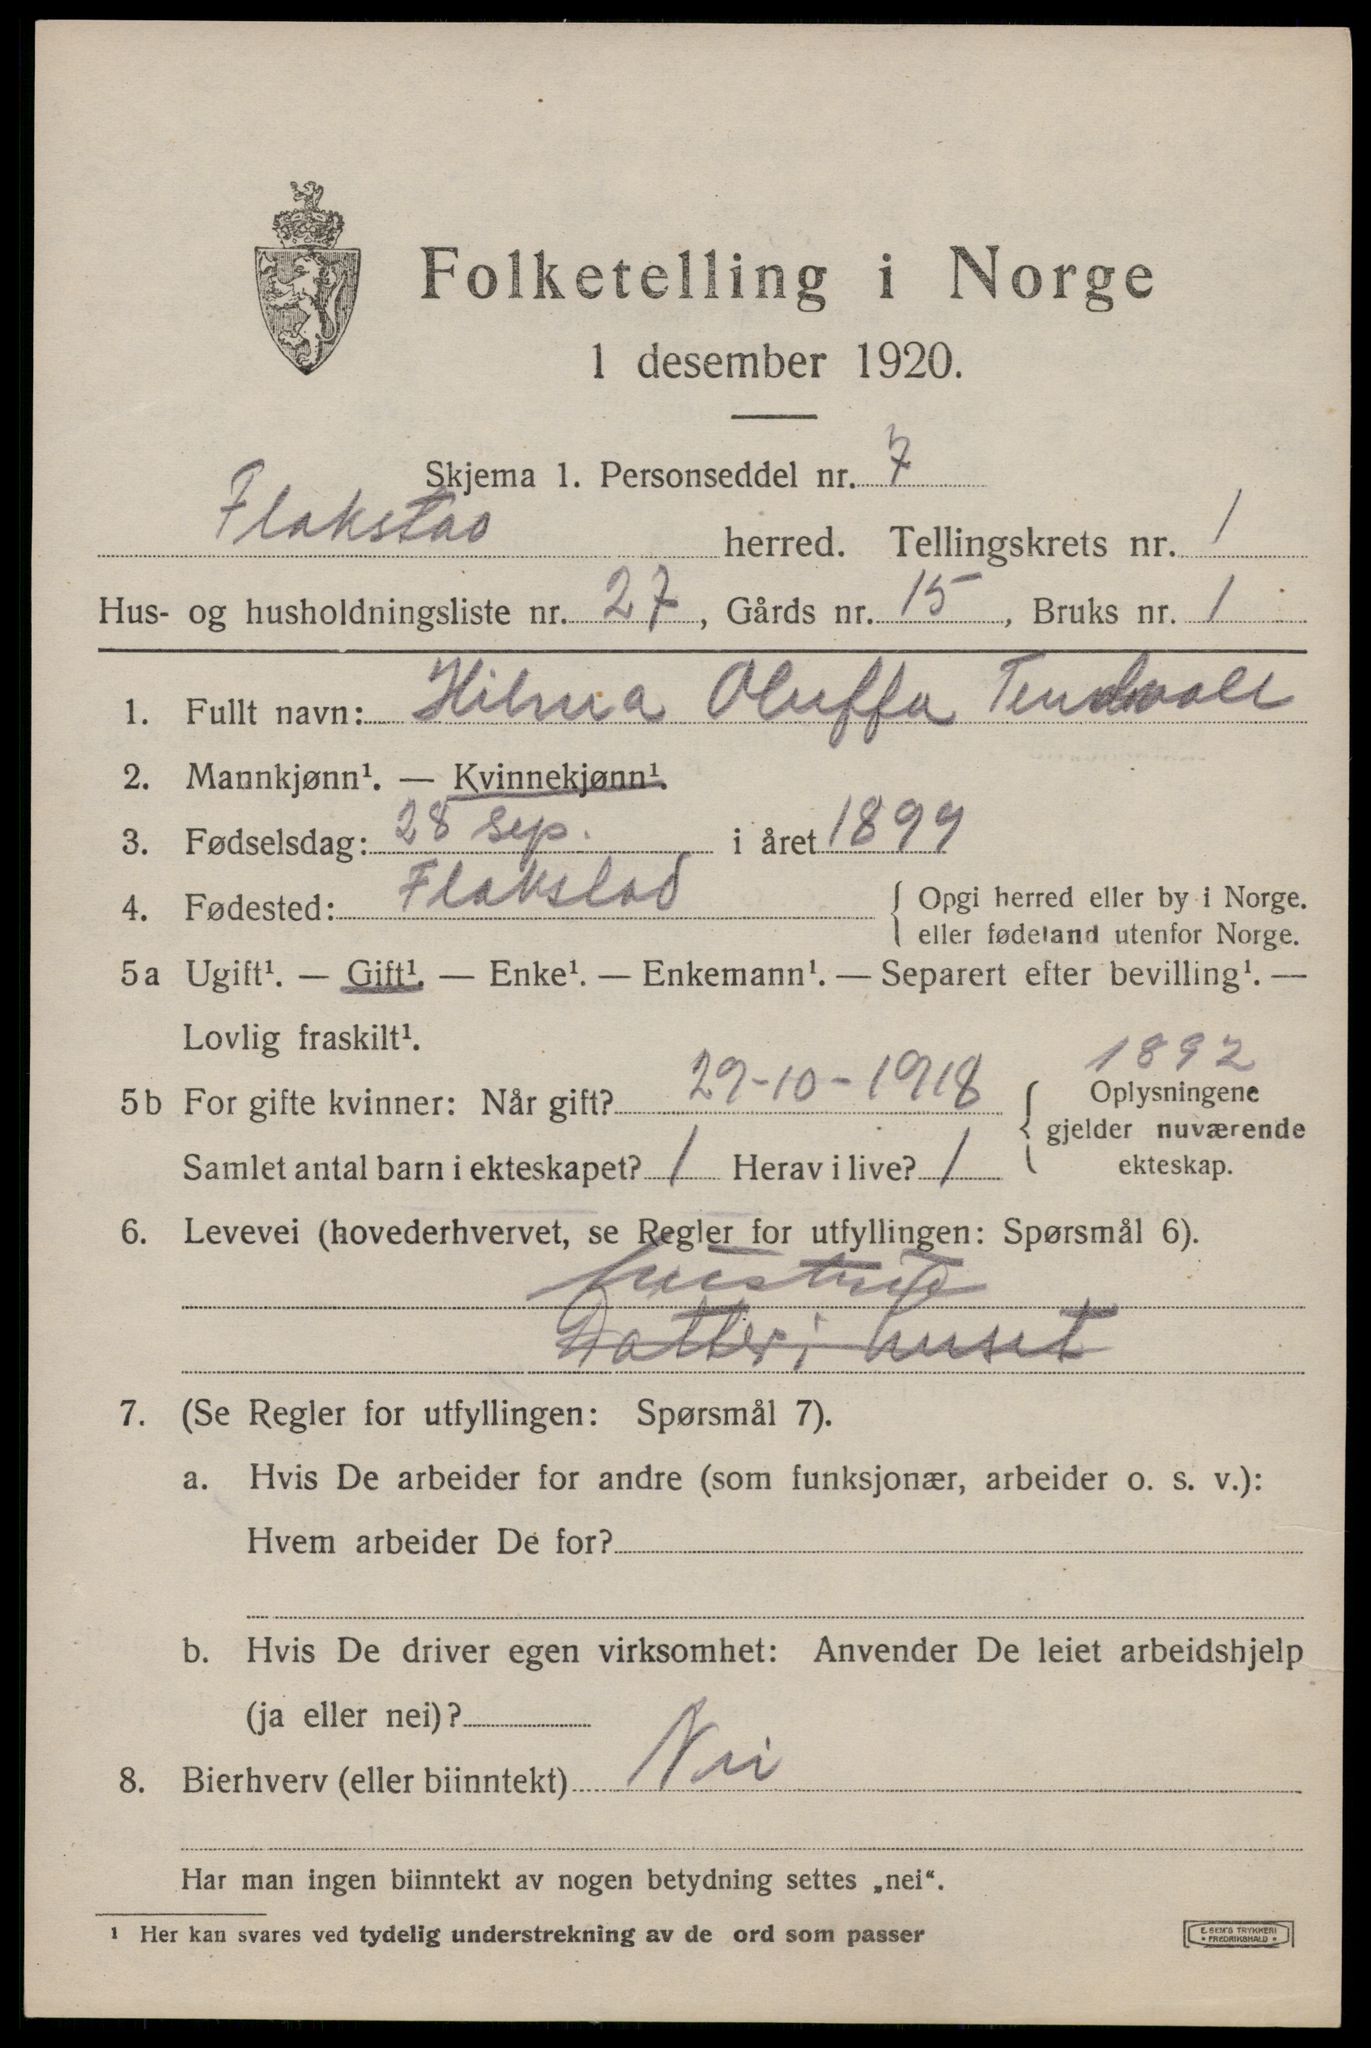 Folketelling i Norge
1 desember 1920.
Skjema 1. Personseddel nr. 7
Flakstad herred. Tellingskrets nr. 1
Hus- og husholdningsliste nr. 27, Gårds nr. 15, Bruks nr. 1
1. Fullt navn: Hilma Oluffa
2. Mannkjønn¹. — Kvinnekjønn¹.
3. Fødselsdag: 28 sep. i året 1899
4. Fødested: Flakstad { Opgi herred eller by i Norge.
eller fødeland utenfor Norge.
5a Ugift¹. — Gift¹. — Enke¹. — Enkemann¹. — Separert efter bevilling¹. —
Lovlig fraskilt¹.
1892
5b For gifte kvinner: Når gift? 29-10-1918 { Oplysningene
gjelder nuværende
Samlet antal barn i ekteskapet? 1 Herav i live? 1 ekteskap.
6. Levevei (hovederhvervet, se Regler for utfyllingen: Spørsmål 6).
Datter i huset
7. (Se Regler for utfyllingen: Spørsmål 7).
a. Hvis De arbeider for andre (som funksjonær, arbeider o. s. v.):
Hvem arbeider De for?
b. Hvis De driver egen virksomhet: Anvender De leiet arbeidshjelp
(ja eller nei)?
8. Bierhverv (eller biinntekt) Nei
Har man ingen biinntekt av nogen betydning settes „nei“.
¹ Her kan svares ved tydelig understrekning av de ord som passer
E. SEM'S TRYKKERI
FREDRIKSHALD